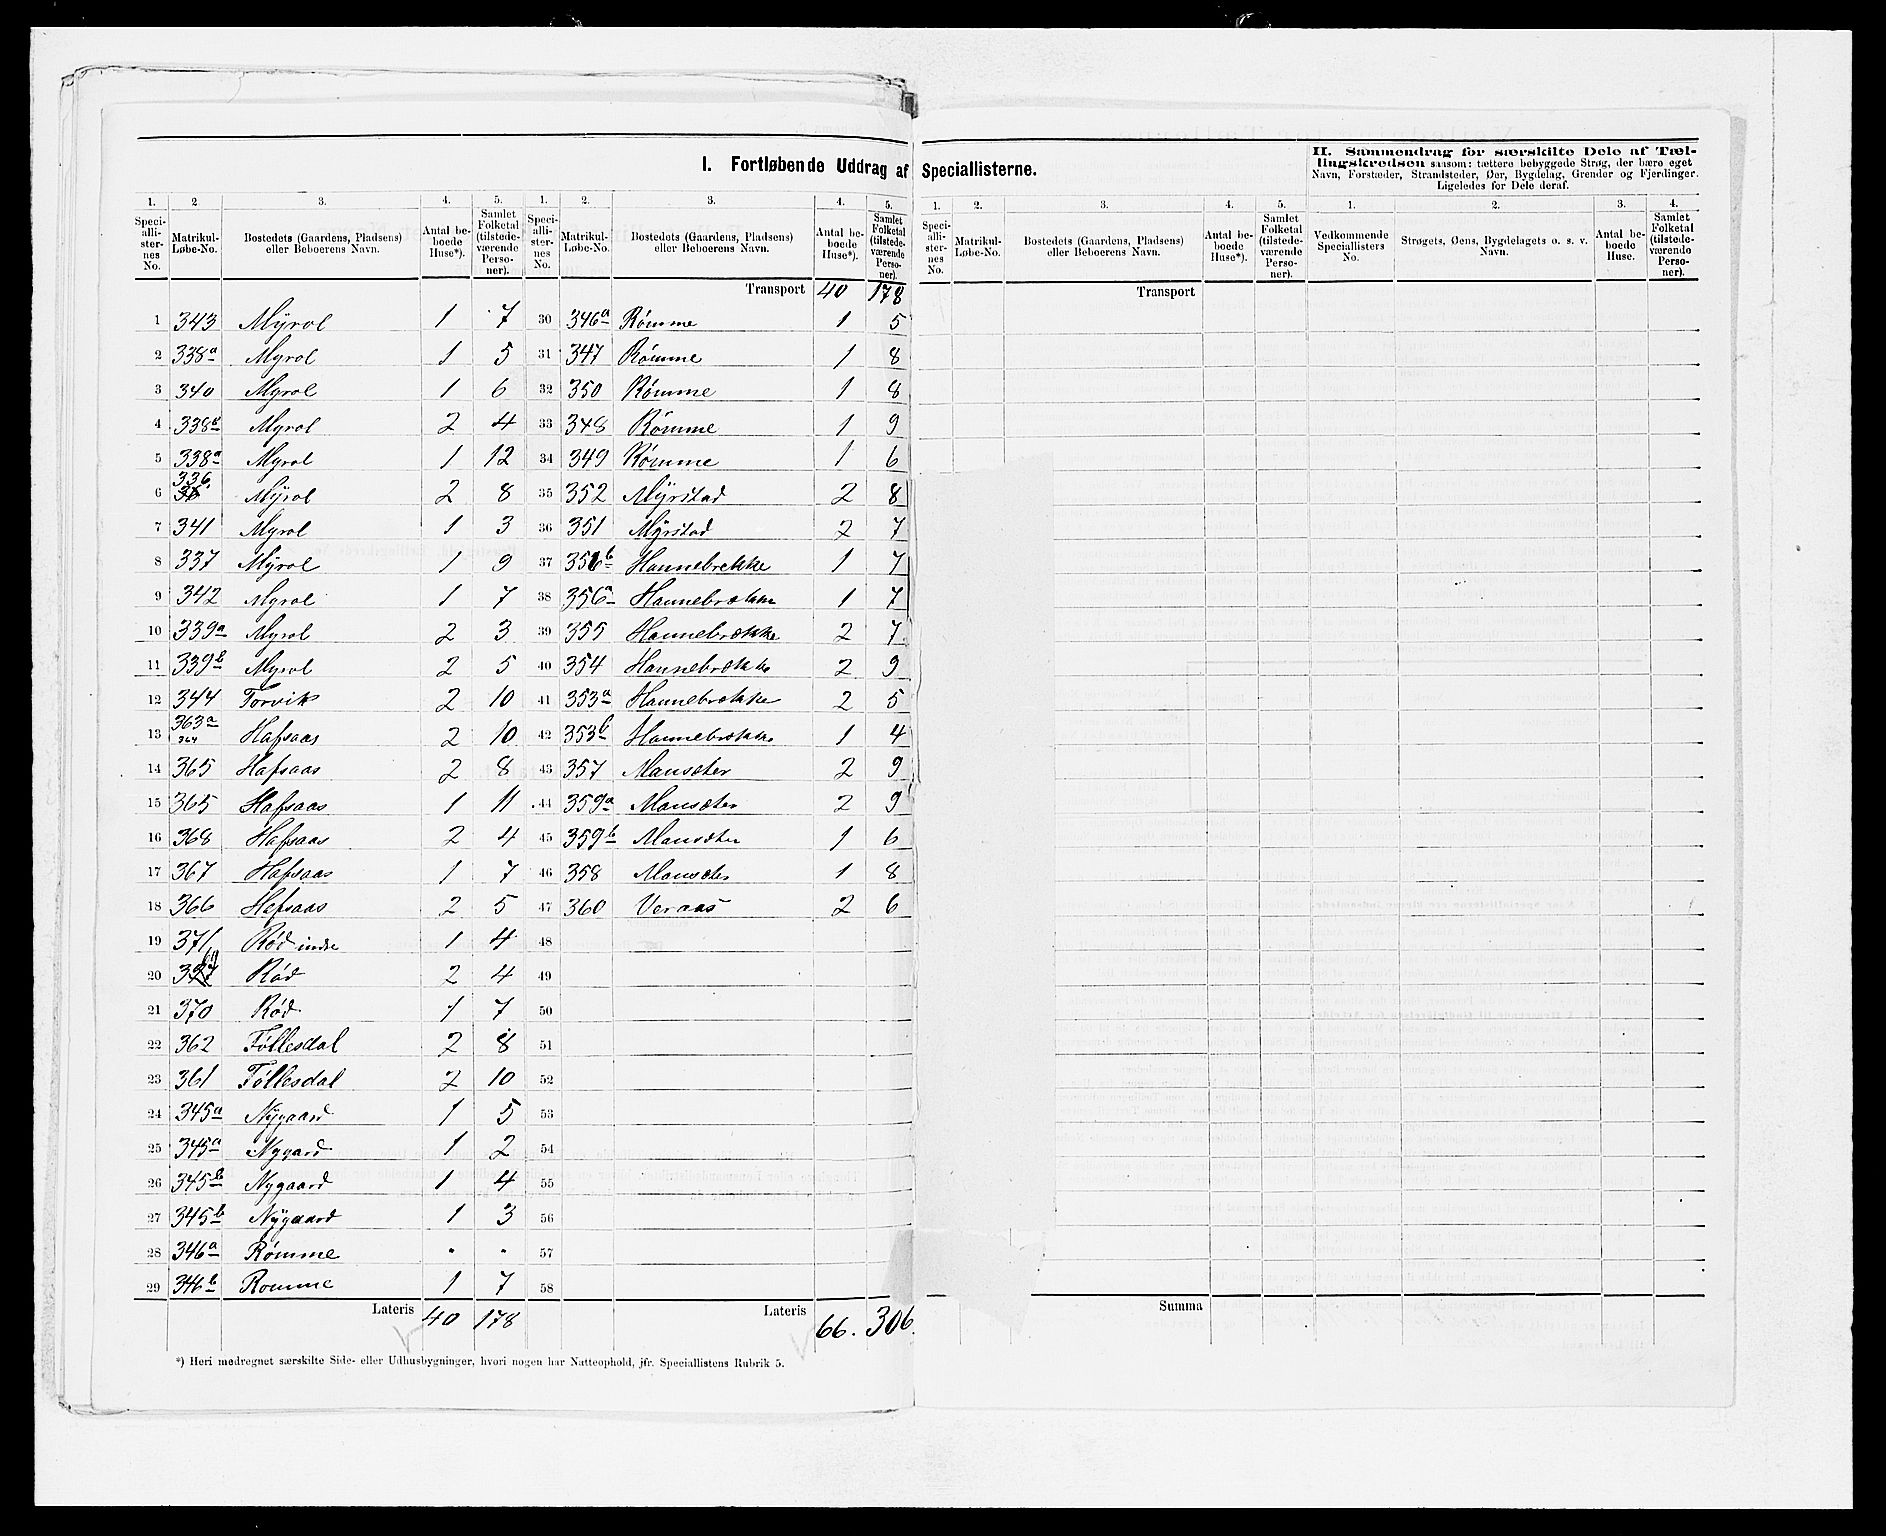 I. Fortløbende Uddrag af Speciallisterne.
II. Sammendrag for særskilte Dele af Tæl-
lingskredsen saasom: tættere bebyggede Strøg, der bære eget
Navn, Forstæder, Strandsteder, Øer, Bygdelag, Grender og Fjerdinger.
Ligeledes for Dele deraf.
1. 2. 3. 4. 5. 1. 2. 3. 4. 5. 1. 2. 3. 4. 5. 1. 2. 3. 4.
Speciallisternes No. Matrikul-Løbe-No. Bostedets (Gaardens, Pladsens) eller Beboerens Navn. Antal beboede Huse*). Samlet Folketal (tilstedeværende Personer).
Speciallisternes No. Matrikul-Løbe-No. Bostedets (Gaardens, Pladsens) eller Beboerens Navn. Antal beboede Huse*). Samlet Folketal (tilstedeværende Personer).
Speciallisternes No. Matrikul-Løbe-No. Bostedets (Gaardens, Pladsens) eller Beboerens Navn. Antal beboede Huse*). Samlet Folketal (tilstedeværende Personer).
Vedkommende Speciallisters No. Strøgets, Øens, Bygdelagets o. s. v. Navn. Antal beboede Huse. Samlet Folketal (tilstedeværende Personer).
Transport 40 178 Transport
1 343 Myrol 1 7 30 346a Rømme 1 5
2 338a Myrol 1 5 31 347 Rømme 1 8
3 340 Myrol 1 6 32 350 Rømme 1 8
4 338b Myrol 2 4 33 348 Rømme 1 9
5 338a Myrol 1 12 34 349 Rømme 1 6
6 336 Myrol 2 8 35 352 Myrstad 2 8
7 341 Myrol 1 3 36 351 Myrstad 2 7
8 337 Myrol 1 9 37 356b Hannebrekke 1 7
9 342 Myrol 1 7 38 356a Hannebrække 1 7
10 339a Myrol 2 3 39 355 Hannebrække 2 7
11 339b Myrol 2 5 40 354 Hannebrække 2 9
12 344 Torvik 2 10 41 353a Hannebrække 2 5
13 363a 364 Hafsaas 2 10 42 353b Hannebrække 1 4
14 365 Hafsaas 2 8 43 357 Mansæter 2 9
15 365 Hafsaas 1 11 44 359a Mansæter 2 9
16 368 Hafsaas 2 4 45 359b Mansæter 1 6
17 367 Hafsaas 1 7 46 358 Mansæter 1 8
18 366 Hafsaas 2 5 47 360 Veraas 2 6
19 371 Rød indre 1 4 48
20 Rød 2 4 49
21 370 Rød 1 7 50
22 362 Føllesdal 2 8 51
23 361 Føllesdal 2 10 52
24 345a Nygaard 1 5 53
25 345a Nygard 1 2 54
26 345b Nygaard 1 4 55
27 345b Nygaard 1 3 56
28 346a Rømme " " 57
29 346b Romme 1 7 58
Lateris 40 178 Lateris 66. 306. Summa
*) Heri medregnet særskilte Side- eller Udhusbygninger, hvori nogen har Natteophold, jfr. Speciallistens Rubrik 5.